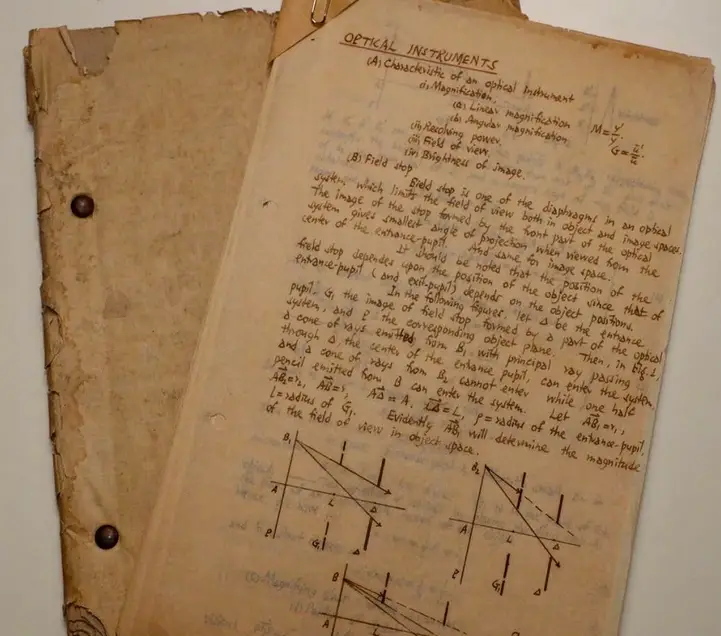 OPTICAL INSTRUMENTS
(A) Characteristic of an optical Instrument
(i) Magnification
(a) Linear magnification M = y'/y
(b) Angular magnification G = u'/u
(ii) Resolving power.
(iii) Field of view
(iv) Brightness of image.
(B) Field stop
Field stop is one of the diaphragms in an optical
system, which limits the field of view both in object and image spaces.
The image of the stop formed by the front part of the optical
system gives smallest angle of projection when viewed from the
center of the entrance-pupil. And same for image space.
It should be noted that the position of the
field stop dependes upon the position of the object since that of
entrance-pupil (and exit-pupil) depends on the object positions.
In the following figures, let Δ be the entrance
pupil, G₁ the image of field stop formed by a part of the optical
system, and P the corresponding object plane. Then, in Fig. 1,
a cone of rays emitted from B₁ with principal ray passing
through Δ, the center of the entrance pupil, can enter the system,
and a cone of rays from B₂ cannot enter while one half
pencil emitted from B can enter the system. Let AB₁=r₁,
AB₂=r₂, AB=r, AΔ=A, LΔ=L, ρ=radius of the entrance-pupil,
l=radius of G₁. Evidently AB₁ will determine the magnitude
of the field of view in object space.
B₁
A
L
Δ
P
G₁
Δ
B₂
A
L
Δ
P
G₁
Δ
B
A
L